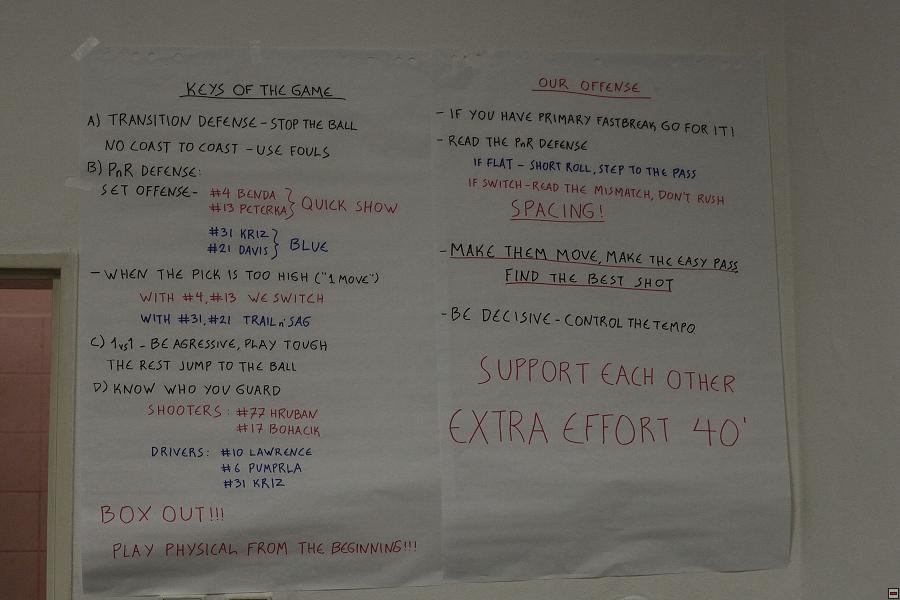 KEYS OF THE GAME
A) TRANSITION DEFENSE - STOP THE BALL
NO COAST TO COAST - USE FOULS
B) PnR DEFENSE:
SET OFFENSE - #4 BENDA
#13 PETERKA } QUICK SHOW
#31 KRIZ
#21 DAVIS } BLUE
- WHEN THE PICK IS TOO HIGH ("1 MOVE")
WITH #4, #13 WE SWITCH
WITH #31, #21 TRAIL n' SAG
C) 1vs1 - BE AGRESSIVE, PLAY TOUGH
THE REST JUMP TO THE BALL
D) KNOW WHO YOU GUARD
SHOOTERS: #77 HRUBAN
#17 BOHACIK
DRIVERS: #10 LAWRENCE
#6 PUMPRLA
#31 KRIZ
BOX OUT!!!
PLAY PHYSICAL FROM THE BEGINNING!!!
OUR OFFENSE
- IF YOU HAVE PRIMARY FASTBREAK, GO FOR IT!
- READ THE PnR DEFENSE
IF FLAT - SHORT ROLL, STEP TO THE PASS
IF SWITCH - READ THE MISMATCH, DON'T RUSH
SPACING!
- MAKE THEM MOVE, MAKE THE EASY PASS
FIND THE BEST SHOT
- BE DECISIVE - CONTROL THE TEMPO
SUPPORT EACH OTHER
EXTRA EFFORT 40'